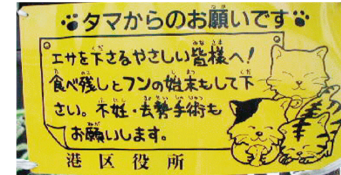 タマからのお願いです
エサを下さるやさしい皆様へ!
食べ残しとフンの始末もして下
さい。不妊・去勢手術も
お願いします。
港区役所